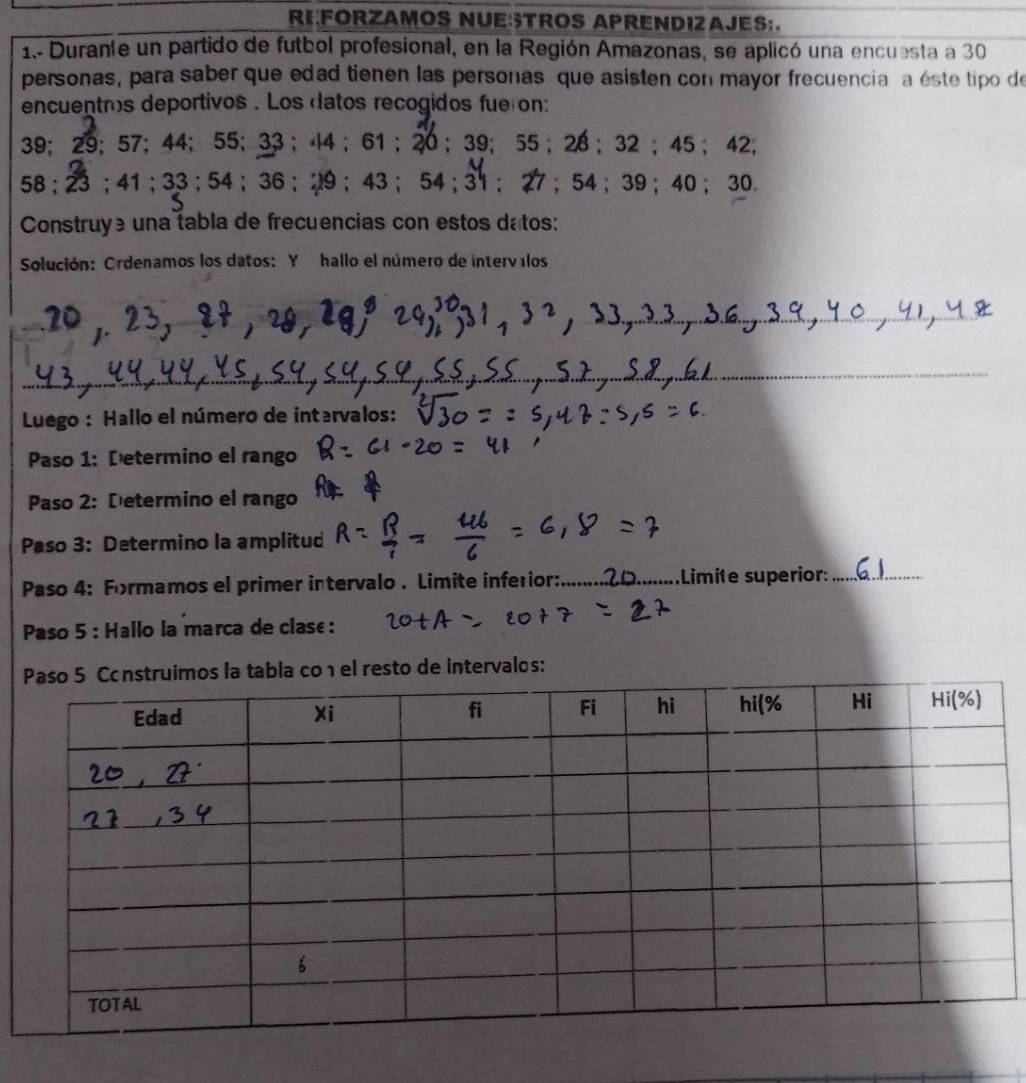 REFORZAMOS NUESTROS APRENDIZAJES:.
1.- Durante un partido de futbol profesional, en la Región Amazonas, se aplicó una encuesta a 30
personas, para saber que edad tienen las personas que asisten con mayor frecuencia a éste tipo de
encuentros deportivos . Los datos recogidos fueron:
39; 29; 57; 44; 55; 33 ; 44 ; 61 ; 20 ; 39; 55 ; 28 ; 32 ; 45 ; 42;
58 ; 23 ; 41 ; 33 ; 54 ; 36 ; 29 ; 43 ; 54 ; 31 ; 27 ; 54 ; 39 ; 40 ; 30.
Construye una tabla de frecuencias con estos datos:
Solución: Ordenamos los datos: Y hallo el número de intervalos
20, 23, 27, 28, 29, 29, 30, 31, 32, 33, 33, 36, 39, 40, 41, 42
43, 44, 44, 45, 54, 54, 54, 55, 55, 57, 58, 61
Luego : Hallo el número de intervalos: ²√30 = = 5,47 = 5,5 = 6.
Paso 1: Determino el rango R = 61 - 20 = 41
Paso 2: Determino el rango
Paso 3: Determino la amplitud R = R/i = 41/6 = 6,8 = 7
Paso 4: Formamos el primer intervalo . Limite inferior:.........20.........Limite superior: .....61.........
Paso 5 : Hallo la marca de clase: 20+A = 20+7 = 27
Paso 5 Construimos la tabla con el resto de intervalos:
Edad Xi fi Fi hi hi(% Hi Hi(%)
20, 27
27, 34
6
TOTAL